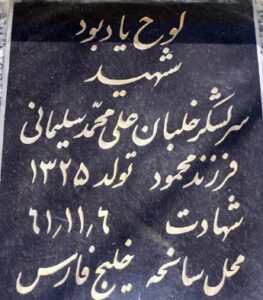 لوح یادبود
شهید
سرلشگر خلبان علی محمد سلیمانی
فرزند محمود تولد ۱۳۲۵
شهادت ۶۱٫۱۱٫۶
محل سانحه خلیج فارس